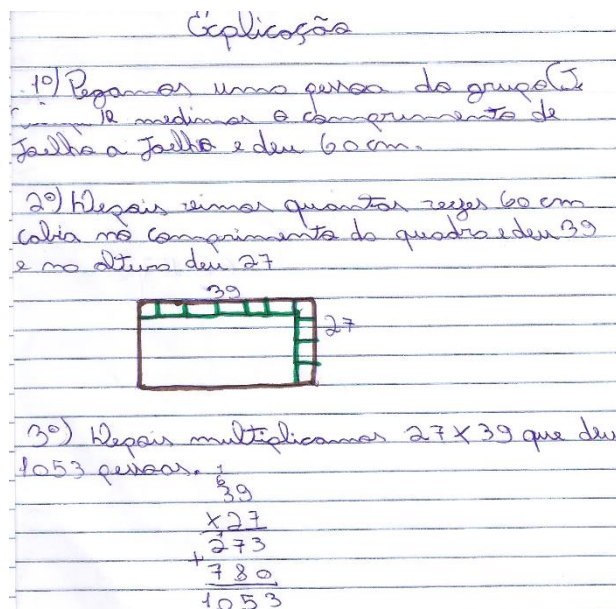 Explicação
1º) Pegamos uma pessoa do grupo (J
e medimos o comprimento de
Joelho a Joelho e deu 60 cm.
2º) Depois vimos quantas vezes 60 cm
cabia no comprimento da quadra e deu 39
e na altura deu 27
39
27
3º) Depois multiplicamos 27 x 39 que deu
1053 pessoas.
39
x27
273
+
780
1053